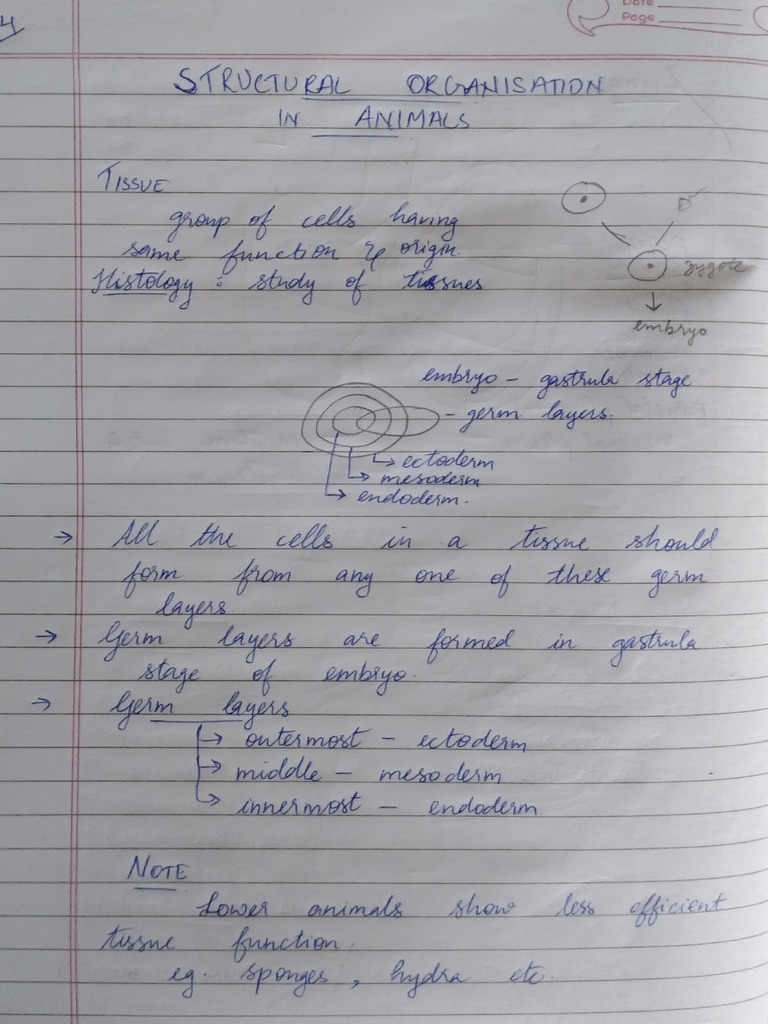 4
Date
Page
STRUCTURAL ORGANISATION
IN ANIMALS
TISSUE
group of cells having
same function & origin.
Histology : study of tissues
zygote
embryo
embryo - gastrula stage
- germ layers.
ectoderm
mesoderm
endoderm.
→ All the cells in a tissue should
form from any one of these germ
layers
→ Germ layers are formed in gastrula
stage of embryo.
→ Germ layers
→ outermost - ectoderm
→ middle - mesoderm
→ innermost - endoderm.
NOTE
Lower animals show less efficient
tissue function.
eg. sponges, hydra etc.